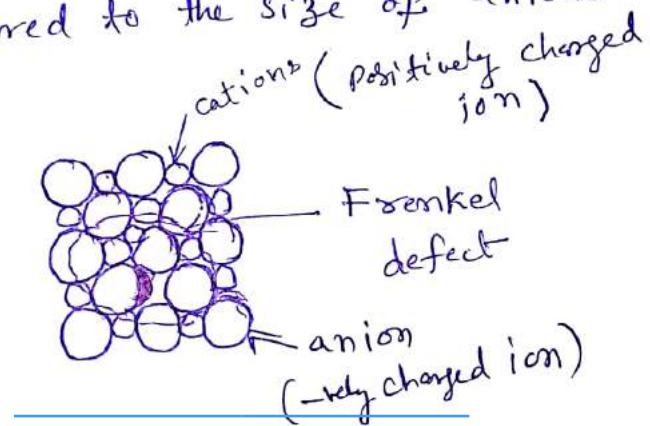 red to the size of
cations (Positively charged
ion)
Frenkel
defect
anion
(-vely charged ion)